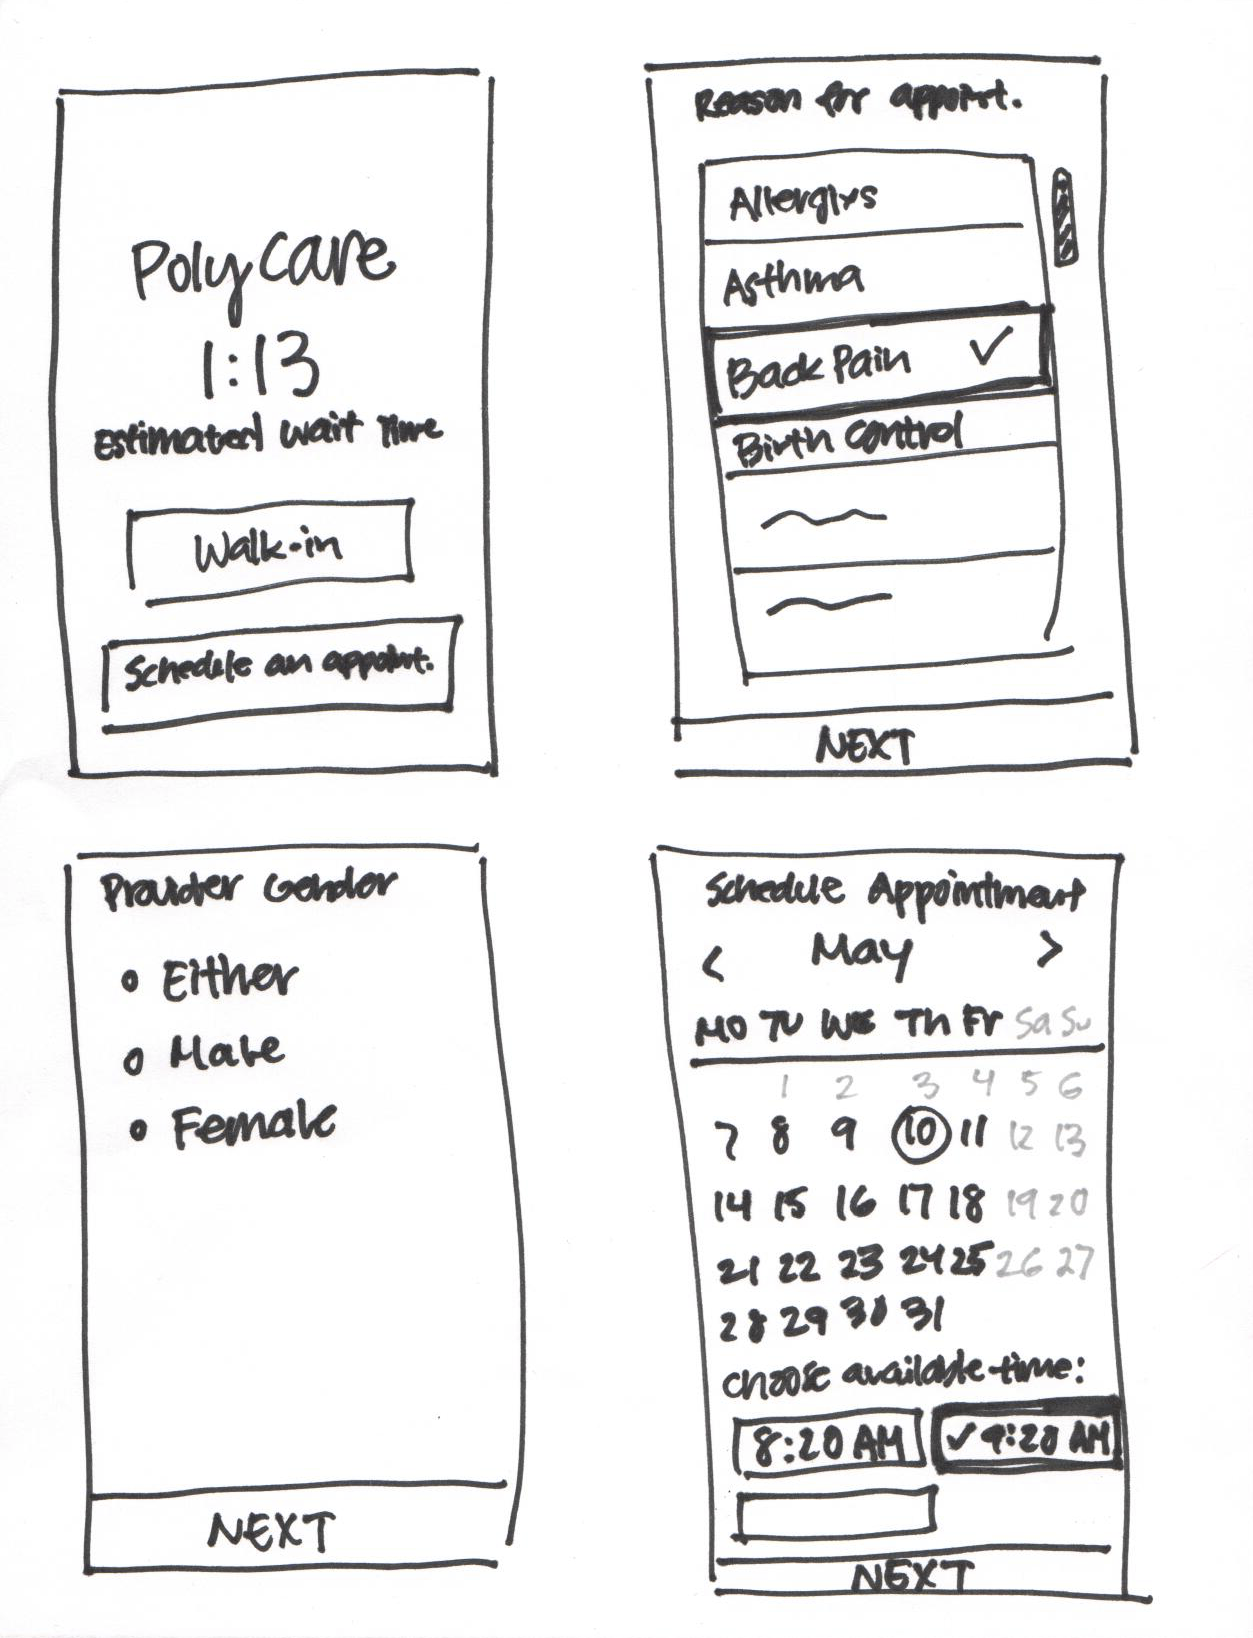 Poly Care
1:13
Estimated wait Time
Walk-in
Schedule an appoint.
Reason for appoint.
Allergiys
Asthma
Back Pain ✓
Birth Control
NEXT
Provider Gender
Either
Male
Female
NEXT
Schedule Appointment
< May >
MO TU WE Th Fr Sa Su
1 2 3 4 5 6
7 8 9 10 11 12 13
14 15 16 17 18 19 20
21 22 23 24 25 26 27
28 29 30 31
choose available time:
8:20 AM ✓ 9:20 AM
NEXT